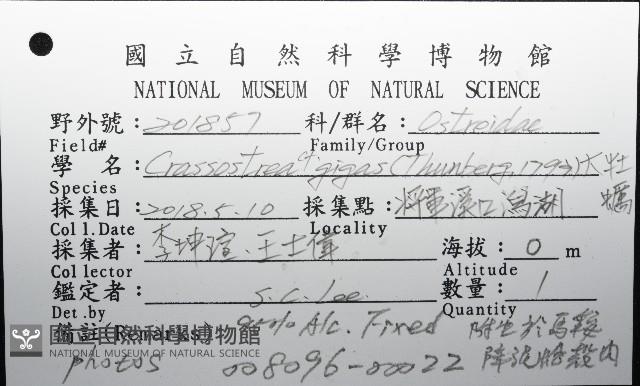 國立自然科學博物館
NATIONAL MUSEUM OF NATURAL SCIENCE
野外號：201857 科/群名：Ostreidae
Field# Family/Group
學 名：Crassostrea cf. gigas (Thunberg, 1793) 大牡蠣
Species
採集日：2018.5.10 採集點：將軍溪口潟湖
Coll.Date Locality
採集者：李坤瑄、王士偉 海拔：0 m
Collector Altitude
鑑定者：S.C. Lee 數量：1
Det.by Quantity
備註(Remarks) Alc. Fixed 附生於馬鞍
國立自然科學博物館
NATIONAL MUSEUM OF NATURAL SCIENCE
photos 008096-00022 殼內